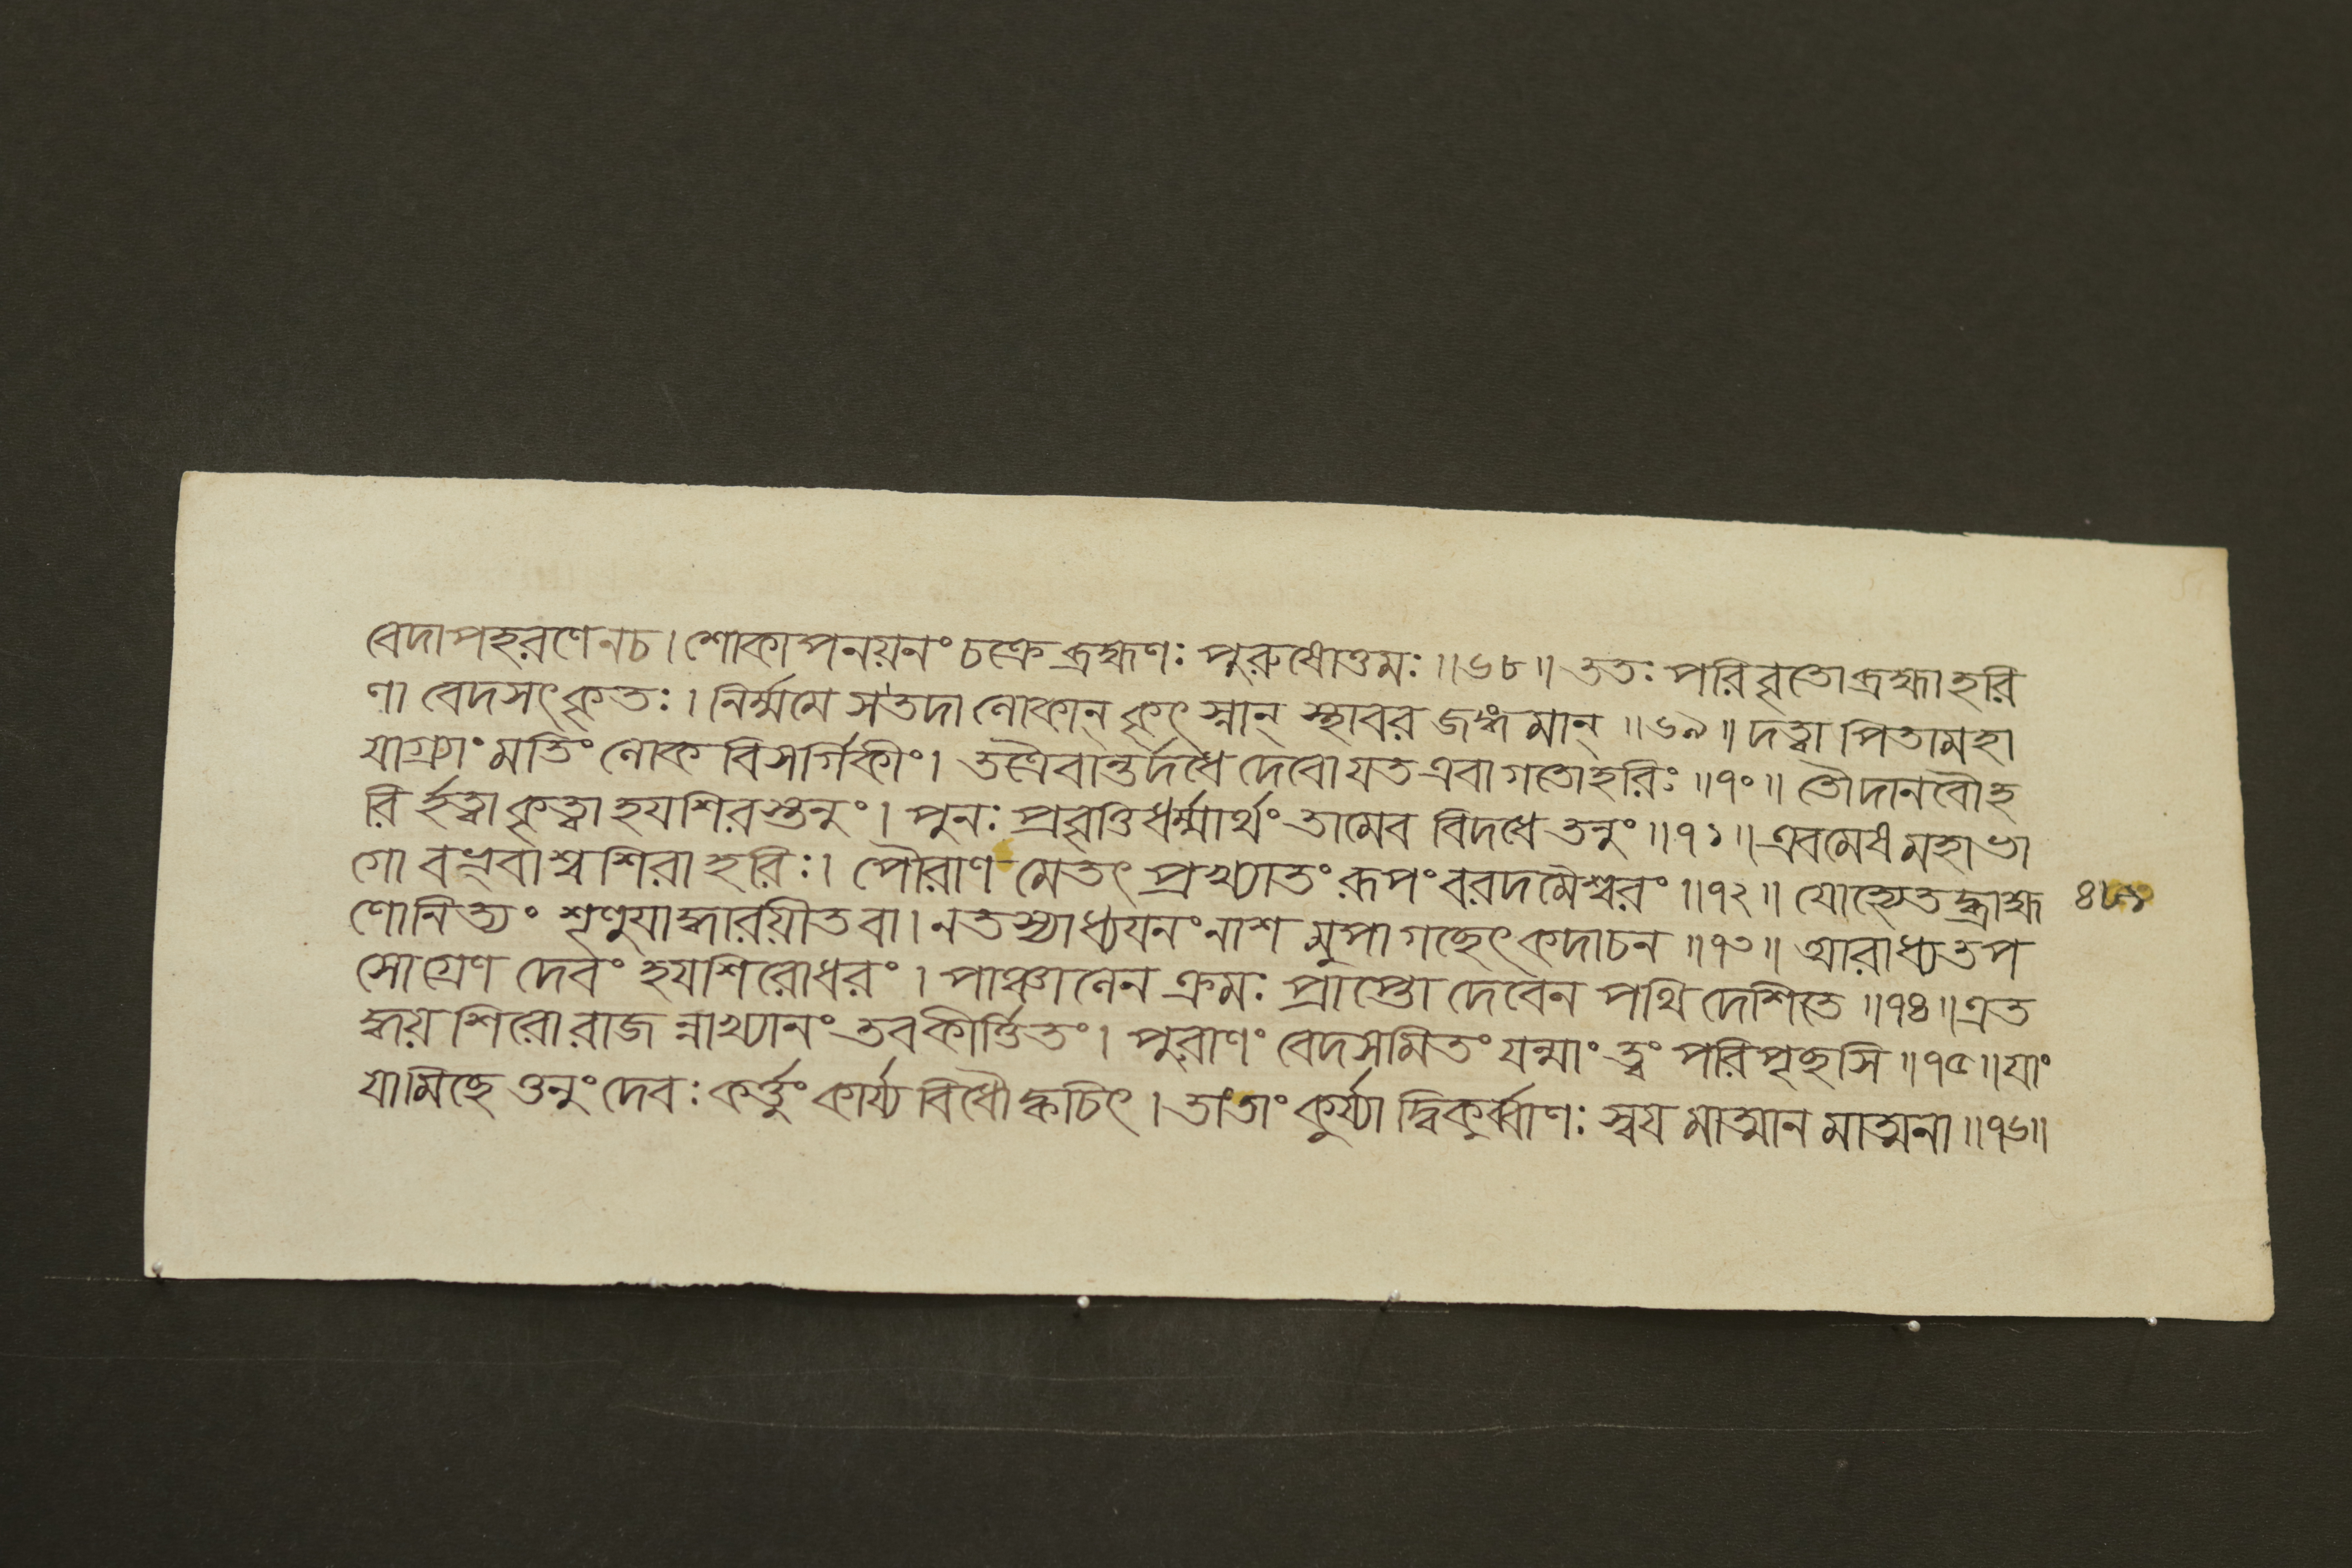 বেদাপহরণেনচ। শোকাপনয়নং চক্রে ব্রহ্মণঃ পুরুষোত্তমঃ ॥৬৮॥ ততঃ পরিবৃতো ব্রহ্মা হরি
ণা বেদসৎকৃতঃ। নির্ম্মমে স তদা লোকান্ কৃৎস্নান্ স্থাবর জঙ্গমান্ ॥৬৯॥ দত্বা পিতামহা
যাগ্র্যাং মতিং লোক বিসর্গিকীং। তত্রৈবান্তর্দধে দেবো যত এবাগতোহরিঃ ॥৭০॥ তৌদানবৌহ
রি র্হত্বা কৃত্বা হযশিরস্তনুং। পুনঃ প্রবৃত্তিধর্ম্মার্থং তামেব বিদধে তনুং ॥৭১॥ এবমেষ মহাভা
গো বভূবাশ্ব শিরা হরিঃ। পৌরাণ মেতৎ প্রখ্যাতং রূপং বরদমৈশ্বরং ॥৭২॥ যোহ্যেতদ্ব্রাহ্ম
ণোনিত্যং শৃণুযাদ্ধারয়ীত বা। নতস্যাধ্যযনং নাশ মুপাগচ্ছেৎ কদাচন ॥৭৩॥ আরাধ্যতপ
সোগ্রেণ দেবং হযশিরোধরং। পাঞ্চালেন ক্রমঃ প্রাপ্তো দেবেন পথি দেশিতে ॥৭৪॥ এত
দ্ধয় শিরোরাজ ন্নাখ্যানং তবকীর্ত্তিতং। পুরাণং বেদসমিতং যন্মাং ত্বং পরিপৃচ্ছসি ॥৭৫॥ যাং
যামিচ্ছে ত্তনুং দেবঃ কর্ত্তুং কার্য্য বিধৌ ক্বচিৎ। তাংতাং কুর্য্যা দ্বিকুর্ব্বাণঃ স্বয মাত্মান মাত্মনা ॥৭৬॥